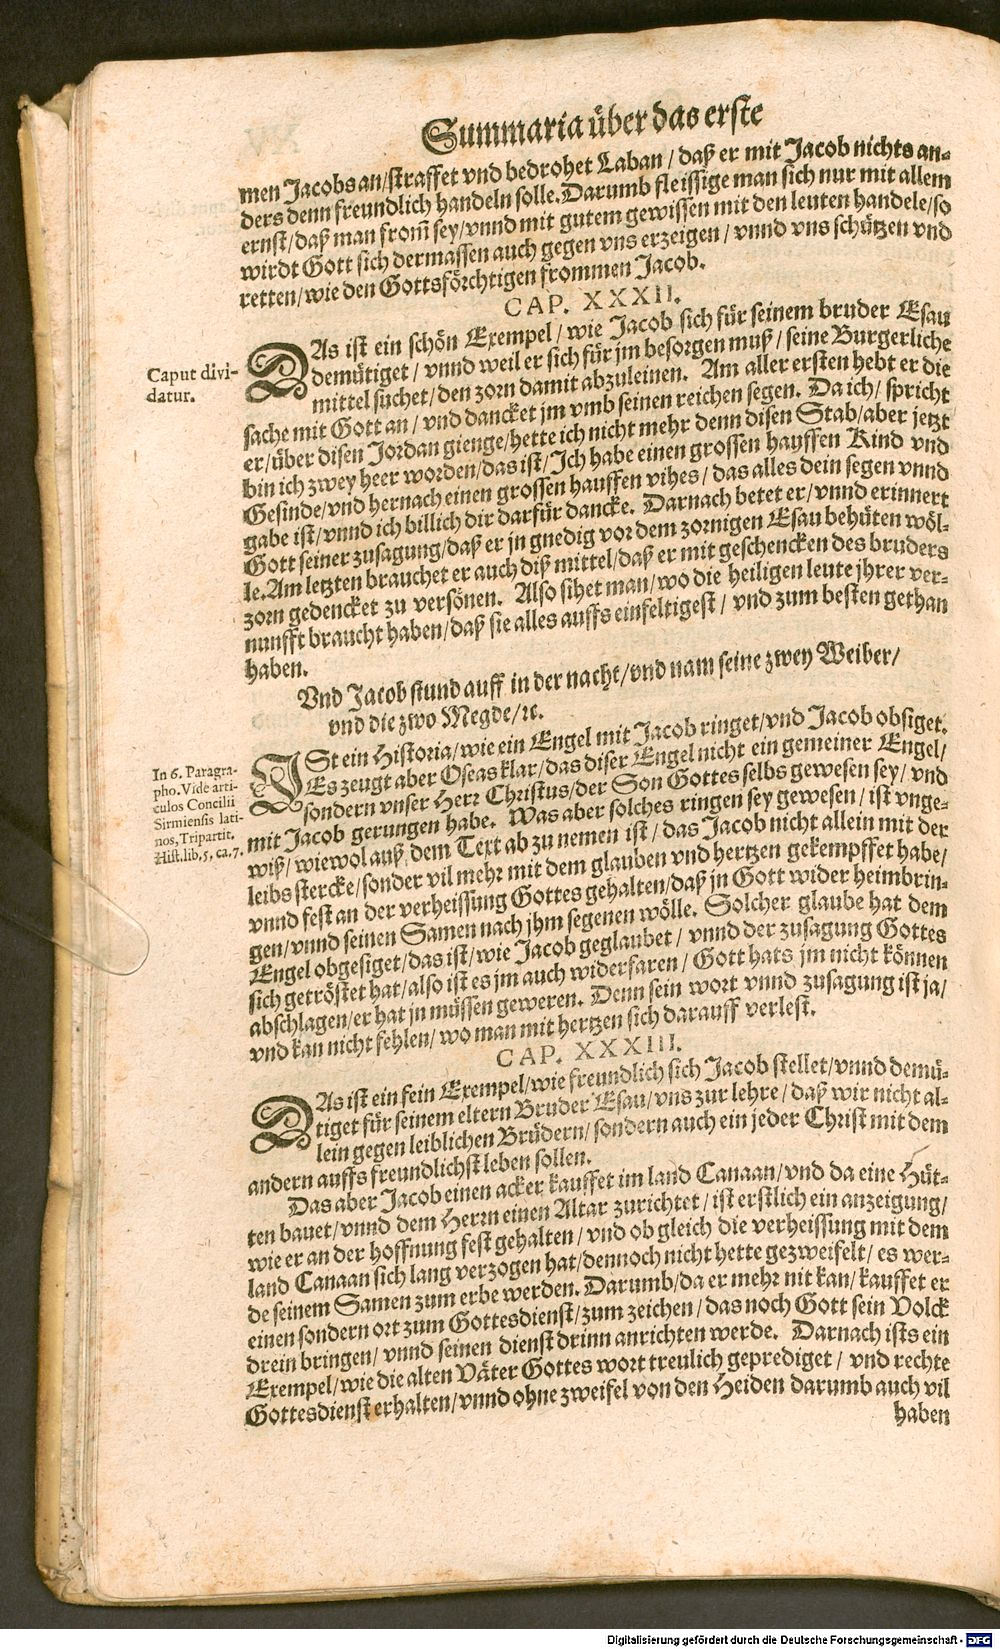 Summaria über das erste
men Jacobs an/straffet vnd bedrohet Laban / daß er mit Jacob nichts an-
ders denn freundlich handeln solle. Darumb fleissige man sich nur mit allem
ernst/daß man from̃ sey/vnnd mit gutem gewissen mit den leuten handele/so
wirdt Gott sich dermassen auch gegen vns erzeigen / vnnd vns schützen vnd
retten/wie den Gottsförchtigen frommen Jacob.
CAP. XXXII.
DAs ist ein schön Exempel / wie Jacob sich für seinem bruder Esau
demütiget / vnnd weil er sich für jm besorgen muß / seine Burgerliche
mittel suchet/den zorn damit abzuleinen. Am aller ersten hebt er die
Caput divi-
datur.
sache mit Gott an / vnd dancket jm vmb seinen reichen segen. Da ich/ spricht
er/über disen Jordan gienge/hette ich nicht mehr denn disen Stab/aber jetzt
bin ich zwey heer worden/das ist/Ich habe einen grossen hauffen Kind vnd
Gesinde/vnd hernach einen grossen hauffen vihes / das alles dein segen vnnd
gabe ist/vnnd ich billich dir darfür dancke. Darnach betet er/vnnd erinnert
Gott seiner zusagung/daß er jn gnedig vor dem zornigen Esau behüten wöl-
le. Am letzten brauchet er auch diß mittel/daß er mit geschencken des bruders
zorn gedencket zu versönen. Also sihet man/wo die heiligen leute jhrer ver-
nunfft braucht haben/daß sie alles auffs einfeltigest / vnd zum besten gethan
haben.
Vnd Jacob stund auff in der nacht/vnd nam seine zwey Weiber/
vnd die zwo Megde/ꝛc.
ISt ein Historia/wie ein Engel mit Jacob ringet/vnd Jacob obsiget.
Es zeugt aber Oseas klar/das diser Engel nicht ein gemeiner Engel/
sondern vnser Herr Christus/der Son Gottes selbs gewesen sey/ vnd
In 6. Paragra-
pho. Vide arti-
culos Concilii
Sirmiensis lati-
nos, Tripartit.
Hist. lib. 5, ca. 7.
mit Jacob gerungen habe. Was aber solches ringen sey gewesen / ist vnge-
wiß/ wiewol auß dem Text ab zu nemen ist / das Jacob nicht allein mit der
leibs stercke/sonder vil mehr mit dem glauben vnd hertzen gekempffet habe/
vnnd fest an der verheissung Gottes gehalten/daß jn Gott wider heimbrin-
gen/vnnd seinen Samen nach jhm segenen wölle. Solcher glaube hat dem
Engel obgesiget/das ist/wie Jacob geglaubet / vnnd der zusagung Gottes
sich getröstet hat/also ist es jm auch widerfaren / Gott hats jm nicht können
abschlagen/er hat jn müssen geweren. Denn sein wort vnnd zusagung ist ja/
vnd kan nicht fehlen/wo man mit hertzen sich darauff verlest.
CAP. XXXIII.
DAs ist ein fein Exempel/wie freundlich sich Jacob stellet/vnnd demü-
tiget für seinem eltern Bruder Esau/vns zur lehre / daß wir nicht al-
lein gegen leiblichen Brüdern/sondern auch ein jeder Christ mit dem
andern auffs freundlichst leben sollen.
Das aber Jacob einen acker kauffet im land Canaan/vnd da eine Hüt-
ten bauet/vnnd dem Herrn einen Altar zurichtet / ist erstlich ein anzeigung/
wie er an der hoffnung fest gehalten / vnd ob gleich die verheissung mit dem
land Canaan sich lang verzogen hat/dennoch nicht hette gezweifelt/ es wer-
de seinem Samen zum erbe werden. Darumb/da er mehr nit kan/kauffet er
einen sondern ort zum Gottesdienst/zum zeichen / das noch Gott sein Volck
drein bringen/ vnnd seinen dienst drinn anrichten werde. Darnach ists ein
Exempel/wie die alten Väter Gottes wort treulich geprediget / vnd rechte
Gottesdienst erhalten/vnnd ohne zweifel von den Heiden darumb auch vil
haben
Digitalisierung gefördert durch die Deutsche Forschungsgemeinschaft - DFG